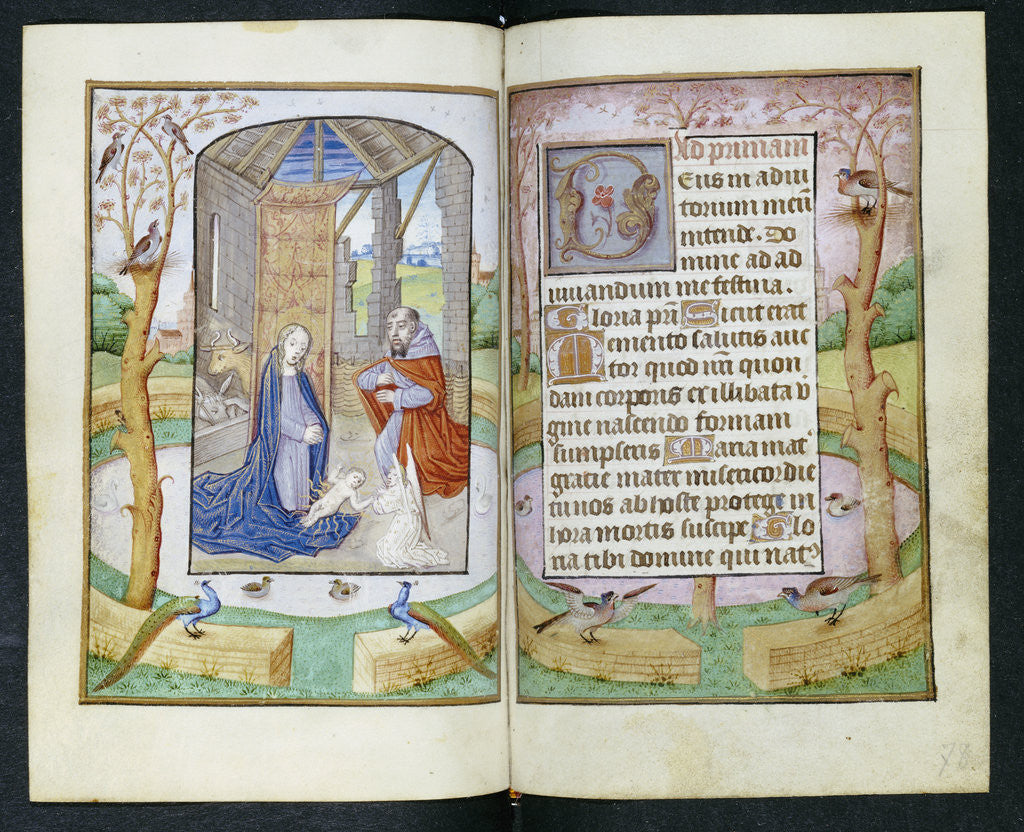 Ad primam
Deus in adiu
torium meũ
intende. Do
mine ad ad
iuuandum me festina.
Gloria pr̃i Sicut erat
Memento salutis auc
tor quod nr̃i quon
dam corporis ex illibata v
gine nascendo formam
sumpseris Maria mat᷒
gracie mater misericordie
tu nos ab hoste protege in
hora mortis suscipe Glo
ria tibi domine qui nat᷒
78